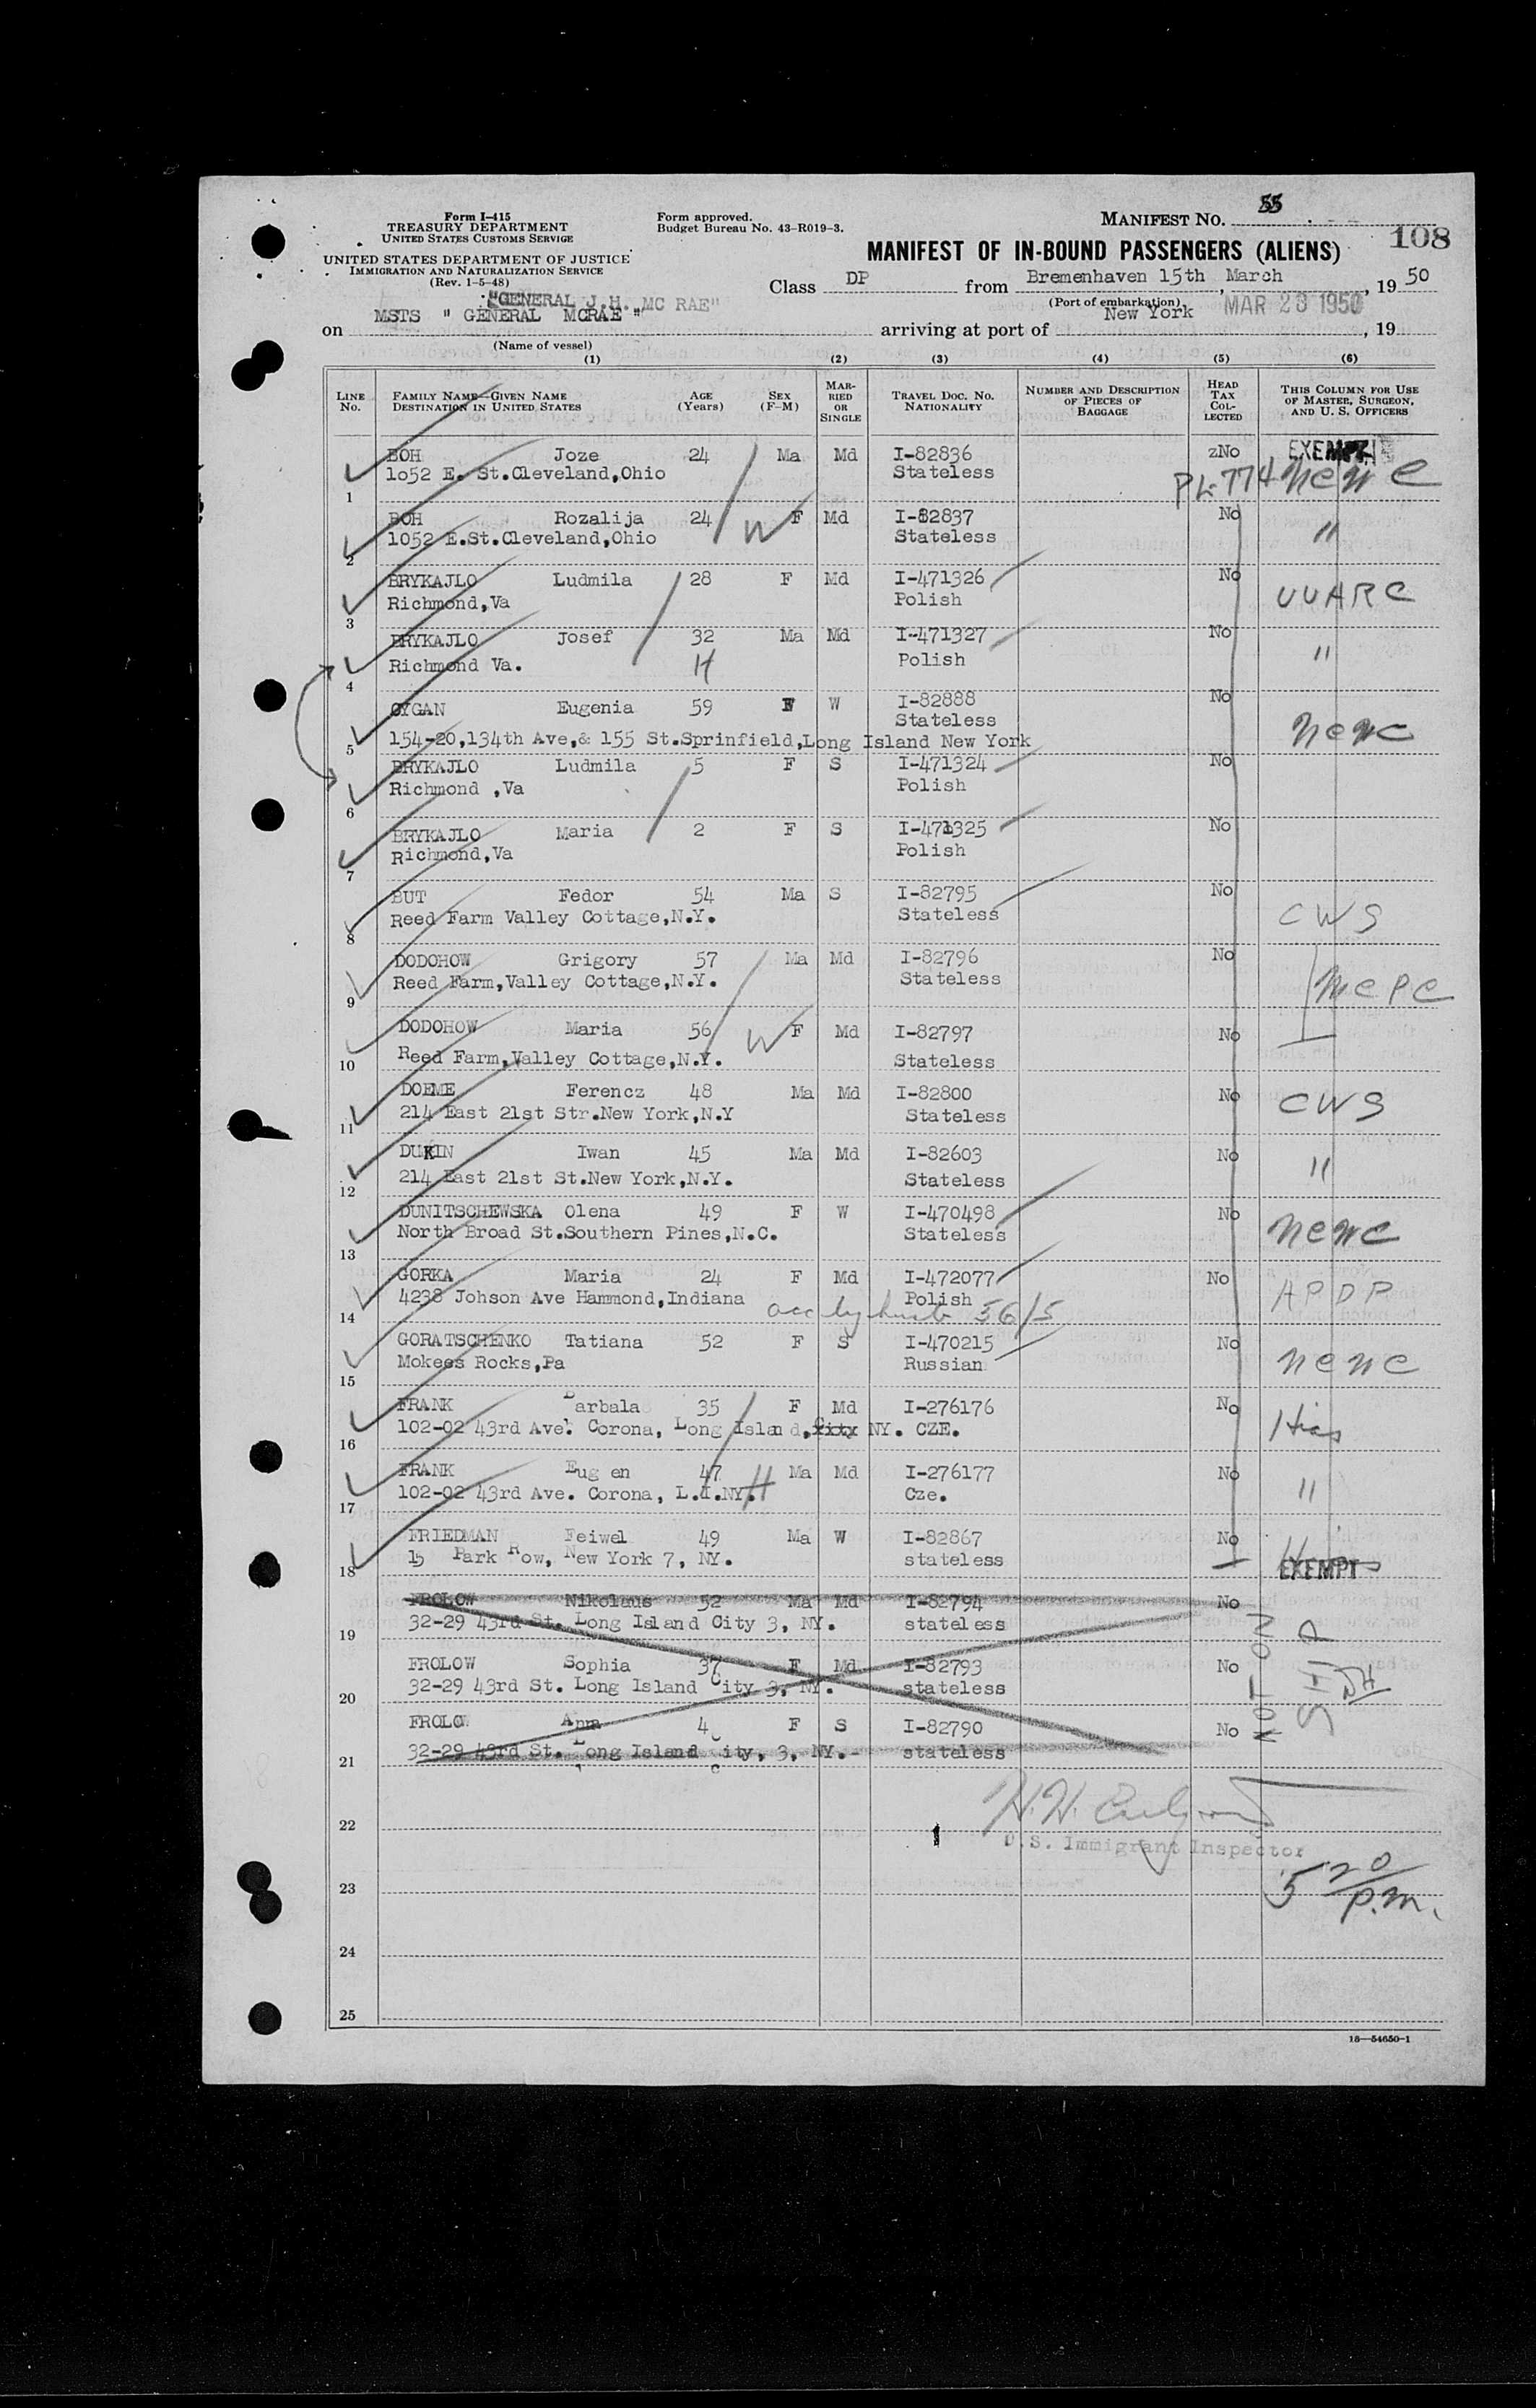 Form I-415
TREASURY DEPARTMENT
UNITED STATES CUSTOMS SERVICE
UNITED STATES DEPARTMENT OF JUSTICE
IMMIGRATION AND NATURALIZATION SERVICE
(Rev. 1-5-48)
Form approved.
Budget Bureau No. 43-R019-3.
MANIFEST NO. 55
108
MANIFEST OF IN-BOUND PASSENGERS (ALIENS)
Class DP from Bremenhaven 15th, March, 1950
(Port of embarkation)
"GENERAL J.H. MC RAE"
on MSTS " GENERAL MCRAE " arriving at port of New York MAR 23 1950, 19
(Name of vessel)
(1) (2) (3) (4) (5) (6)
LINE No. FAMILY NAME—GIVEN NAME DESTINATION IN UNITED STATES AGE (Years) SEX (F-M) MARRIED OR SINGLE TRAVEL DOC. NO. NATIONALITY NUMBER AND DESCRIPTION OF PIECES OF BAGGAGE HEAD TAX COLLECTED THIS COLUMN FOR USE OF MASTER, SURGEON, AND U. S. OFFICERS
BOH Joze 24 Ma Md I-82836 zNo EXEMPT
1 1o52 E. St.Cleveland,Ohio Stateless PL-774 ncwc
BOH Rozalija 24 W F Md I-82837 No
2 1052 E.St.Cleveland,Ohio Stateless "
BRYKAJLO Ludmila 28 F Md I-471326 No
3 Richmond,Va Polish UUARC
BRYKAJLO Josef 32 Ma Md I-471327 No
4 Richmond Va. H Polish "
CYGAN Eugenia 59 F W I-82888 No
Stateless
5 154-20,134th Ave,& 155 St.Sprinfield,Long Island New York ncwc
BRYKAJLO Ludmila 5 F S I-471324 No
6 Richmond ,Va Polish
BRYKAJLO Maria 2 F S I-471325 No
7 Richmond,Va Polish
BUT Fedor 54 Ma S I-82795 No
8 Reed Farm Valley Cottage,N.Y. Stateless CWS
DODOHOW Grigory 57 Ma Md I-82796 No
9 Reed Farm,Valley Cottage,N.Y. Stateless
DODOHOW Maria 56 W F Md I-82797 No
10 Reed Farm,Valley Cottage,N.Y. Stateless
DOEME Ferencz 48 Ma Md I-82800 No
11 214 East 21st Str.New York,N.Y Stateless CWS
DUKIN Iwan 45 Ma Md I-82603 No
12 214 East 21st St.New York,N.Y. Stateless "
DUNITSCHEWSKA Olena 49 F W I-470498 No
13 North Broad St.Southern Pines,N.C. Stateless ncwc
GORKA Maria 24 F Md I-472077 No
14 4238 Johson Ave Hammond,Indiana Polish APDP
acc by husb 56/5
GORATSCHENKO Tatiana 52 F S I-470215 No
15 Mokees Rocks,Pa Russian ncwc
FRANK Barbala 35 F Md I-276176 No
16 102-02 43rd Ave. Corona, Long Island, City NY. CZE. Hias
FRANK Eugen 47 Ma Md I-276177 No
17 102-02 43rd Ave. Corona, L.I.NY. H Cze. "
FRIEDMAN Feiwel 49 Ma W I-82867 No
18 15 Park Row, New York 7, NY. stateless EXEMPT
FROLOW Nikolaus 52 Ma Md I-82794 No
19 32-29 43rd St. Long Island City 3, NY. stateless
FROLOW Sophia 37 F Md I-82793 No
20 32-29 43rd St. Long Island City 3, NY. stateless
FROLOW Anna 4 F S I-82790 No
21 32-29 43rd St. Long Island City, 3, NY.- stateless
NOT ON SHIP
22
U.S. Immigrant Inspector
23
5 20 p.m.
24
25
16—54650-1